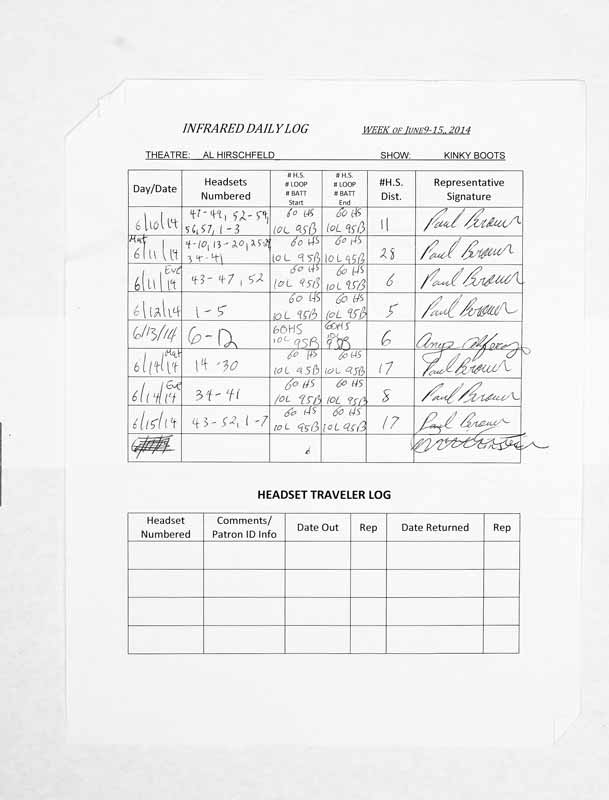 INFRARED DAILY LOG WEEK OF JUNE9-15,, 2014
THEATRE: AL HIRSCHFELD SHOW: KINKY BOOTS
Day/Date Headsets Numbered # H.S. # LOOP # BATT Start # H.S. # LOOP # BATT End #H.S. Dist. Representative Signature
6/10/14 47-49, 52-54, 56,57, 1-3 60 HS 10L 95B 60 HS 10L 95B 11 Paul Brown
Mat 6/11/14 4-10, 13-20, 34-41 60 HS 10L 95B 60 HS 10L 95B 28 Paul Brown
Eve 6/11/14 43-47, 52 60 HS 10L 95B 60 HS 10L 95B 6 Paul Brown
6/12/14 1-5 60 HS 10L 95B 60 HS 10L 95B 5 Paul Brown
6/13/14 6-12 60HS 10L 95B 60HS 10L 95B 6
Mat 6/14/14 14-30 60 HS 10L 95B 60 HS 10L 95B 17 Paul Brown
Eve 6/14/14 34-41 60 HS 10L 95B 60 HS 10L 95B 8 Paul Brown
6/15/14 43-52, 1-7 60 HS 10L 95B 60 HS 10L 95B 17 Paul Brown
HEADSET TRAVELER LOG
Headset Numbered Comments/ Patron ID Info Date Out Rep Date Returned Rep